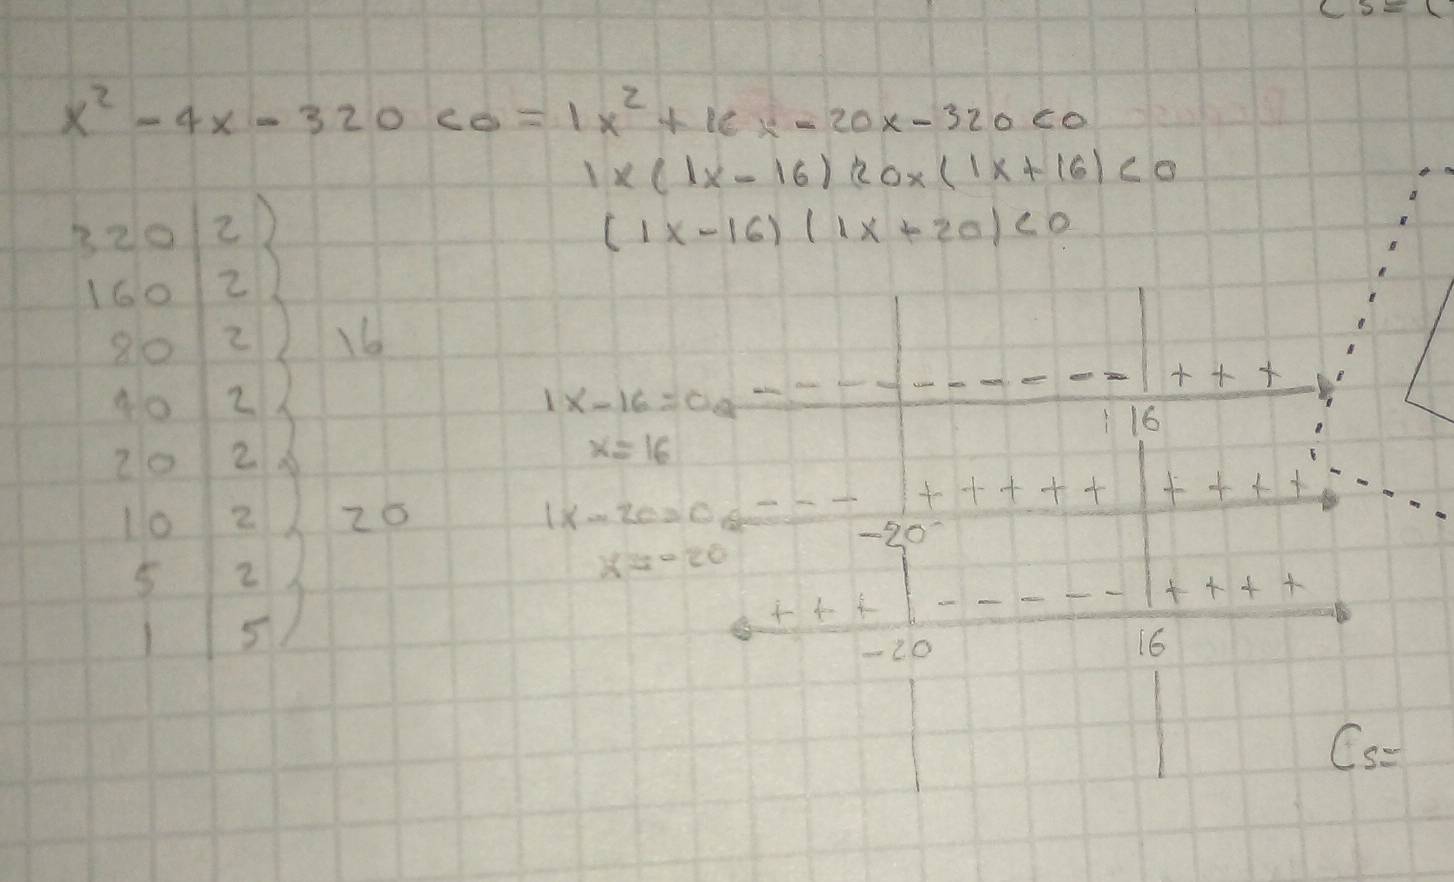 Cs= (
x² - 4x - 320 <0 = 1x² + 16x - 20x - 320 <0
1x (1x - 16) 20x (1x + 16) < 0
(1x - 16) (1x + 20) < 0
320 | 2
160 | 2
80 | 2
16
40 | 2
20 | 2
10 | 2
20
5 | 2
1 | 5
1x - 16 = 0 - - - - - - - - - - + + +
16
x = 16
1x - 20 = 0 - - - + + + + + + + + +
-20
x = -20
+ + + - - - - - + + + +
-20 16
Cs=